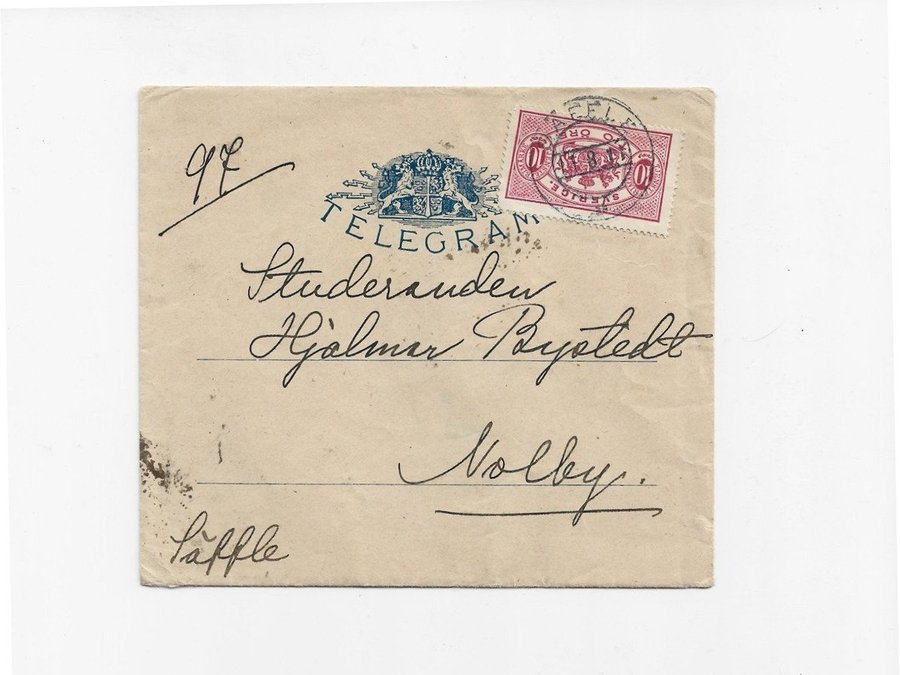 97
TELEGRAM
SVERIGE.
10 ÖRE
10
Studeranden
Hjalmar Bystedt
Nolby.
Säffle